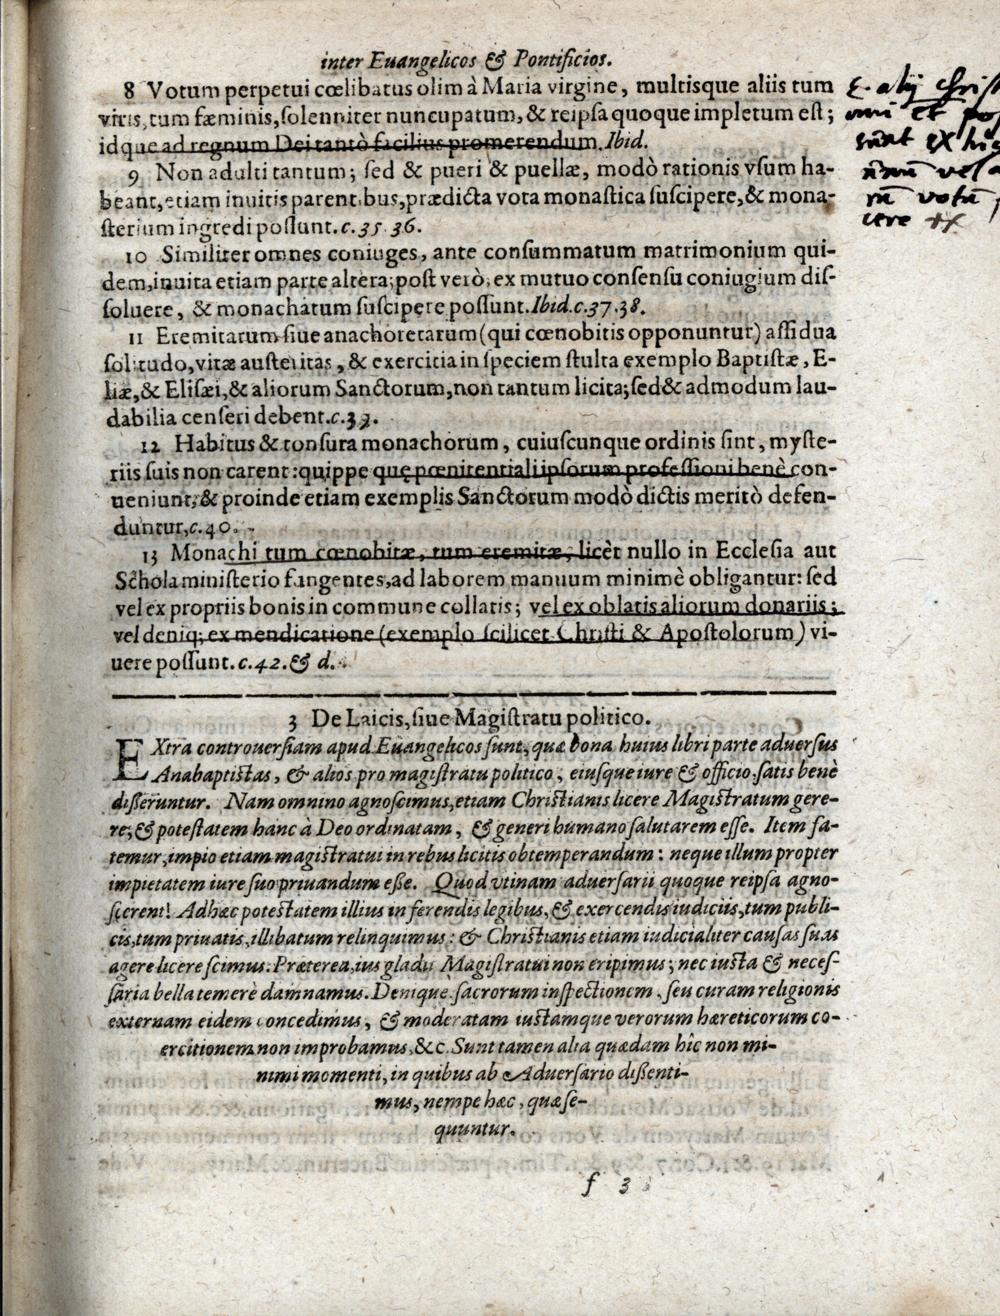 inter Euangelicos & Pontificios.
8 Votum perpetui cœlibatus olim à Maria virgine, multisque aliis tum
viris, tum fæminis, ſolenniter nuncupatum, & reipſa quoque impletum eſt;
idque ad regnum Dei tantò facilius promerendum. Ibid.
9 Non adulti tantum; ſed & pueri & puellæ, modò rationis vſum ha-
beant, etiam inuitis parentibus, prædicta vota monaſtica ſuſcipere, & mona-
ſterium ingredi poſſunt. c. 35. 36.
10 Similiter omnes coniuges, ante conſummatum matrimonium qui-
dem, inuita etiam parte altera; poſt verò, ex mutuo conſenſu coniugium diſ-
ſoluere, & monachatum ſuſcipere poſſunt. Ibid. c. 37. 38.
11 Eremitarum ſiue anachoretarum (qui cœnobitis opponuntur) aſſidua
ſolitudo, vitæ auſteritas, & exercitia in ſpeciem ſtulta exemplo Baptiſtæ, E-
liæ, & Eliſæi, & aliorum Sanctorum, non tantum licita; ſed & admodum lau-
dabilia cenſeri debent. c. 39.
12 Habitus & tonſura monachorum, cuiuſcunque ordinis ſint, myſte-
riis ſuis non carent: quippe quę pœnitentiali ipſorum profeſſioni benè con-
ueniunt, & proinde etiam exemplis Sanctorum modò dictis meritò defen-
duntur, c. 40.
13 Monachi tum cœnobitæ, tum eremitæ, licèt nullo in Eccleſia aut
Schola miniſterio fungentes, ad laborem manuum minimè obligantur: ſed
vel ex propriis bonis in commune collatis; vel ex oblatis aliorum donariis;
vel deniq; ex mendicatione (exemplo ſcilicet Chriſti & Apoſtolorum) vi-
uere poſſunt. c. 42. & d.
3 De Laicis, ſiue Magiſtratu politico.
EXtra controuerſiam apud Euangelicos ſunt, quæ bona huius libri parte aduerſus
Anabaptiſtas, & alios pro magiſtratu politico, eiuſque iure & officio ſatis benè
diſſeruntur. Nam omnino agnoſcimus, etiam Chriſtianis licere Magiſtratum gere-
re; & poteſtatem hanc à Deo ordinatam, & generi humano ſalutarem eſſe. Item fa-
temur, impio etiam magiſtratui in rebus licitis obtemperandum: neque illum propter
impietatem iure ſuo priuandum eſſe. Quod vtinam aduerſarii quoque reipſa agno-
ſcerent! Adhæc poteſtatem illius in ferendis legibus, & exercendis iudiciis, tum publi-
cis, tum priuatis, illibatum relinquimus: & Chriſtianis etiam iudicialiter cauſas ſuas
agere licere ſcimus. Præterea, ius gladii Magiſtratui non eripimus; nec iuſta & neceſ-
ſaria bella temerè damnamus. Denique ſacrorum inſpectionem, ſeu curam religionis
externam eidem concedimus, & moderatam iuſtamque verorum hæreticorum co-
ercitionem non improbamus, &c. Sunt tamen alia quædam hîc non mi-
nimi momenti, in quibus ab Aduerſario diſſenti-
mus, nempe hæc, quæ ſe-
quuntur.
f 3